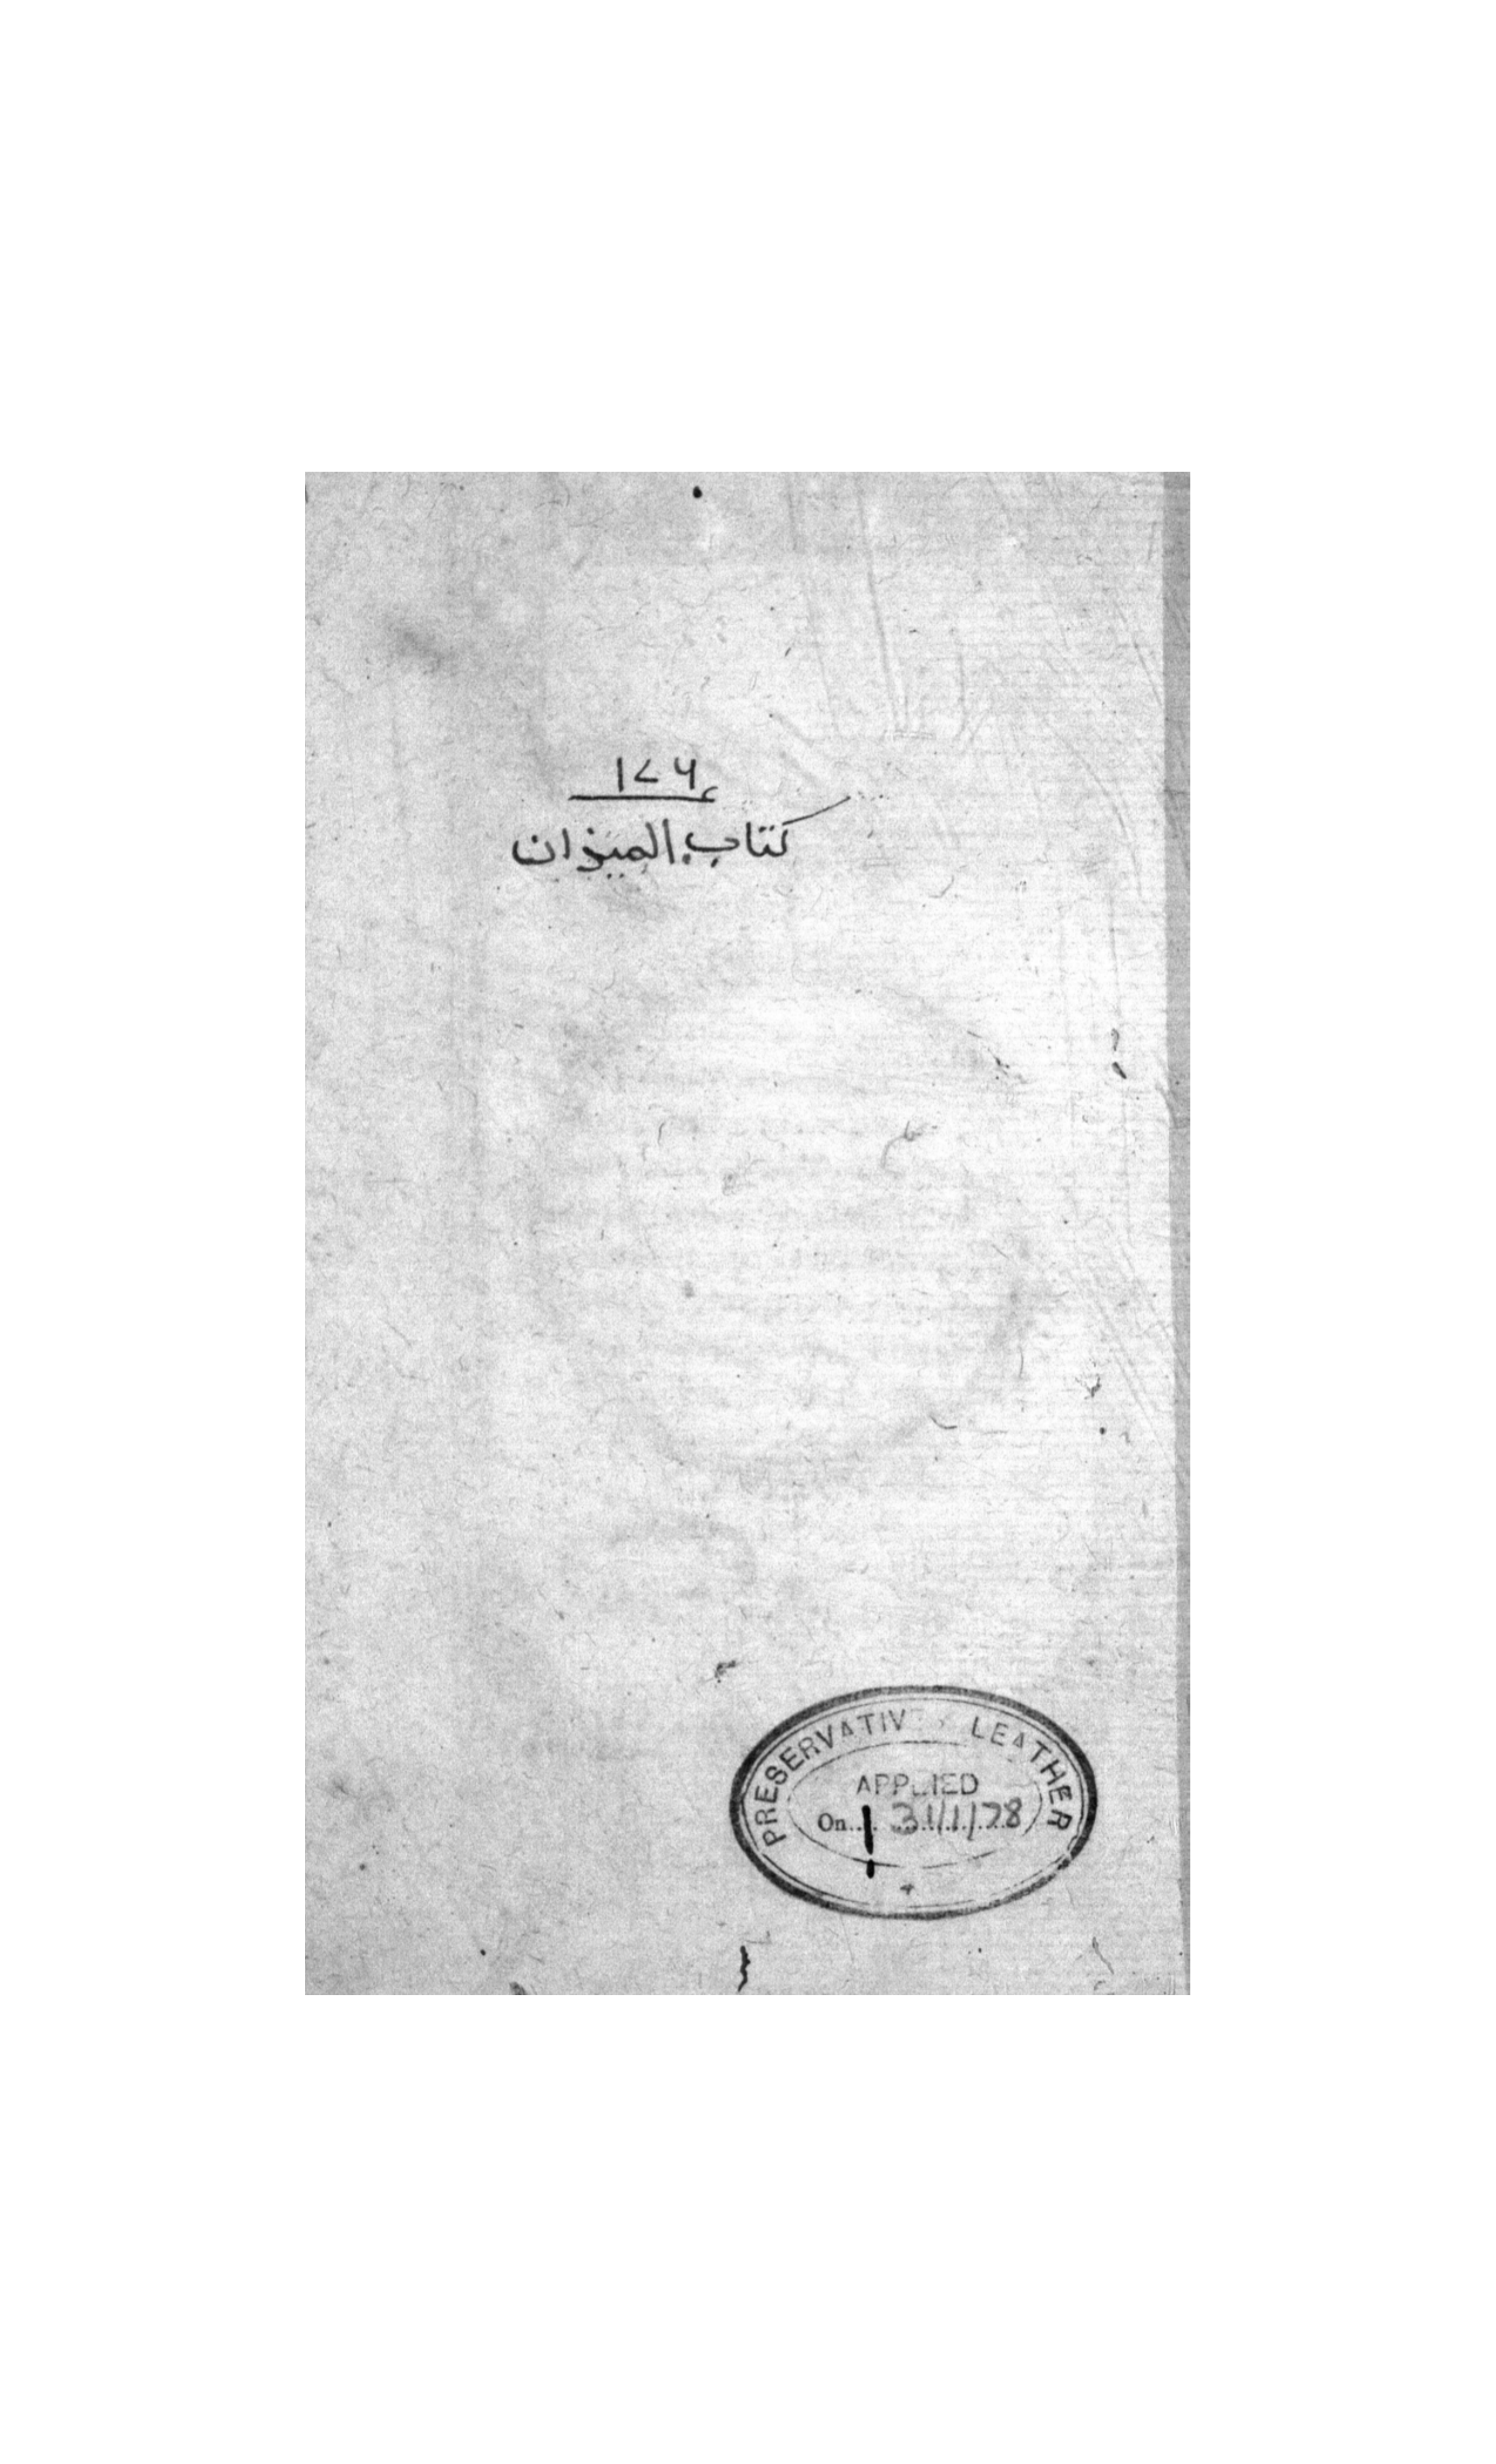 ۱۷۶
كتاب الميزان
PRESERVATIVE LEATHER
APPLIED
On.... 31/1/78